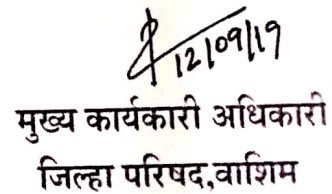 12/09/19
मुख्य कार्यकारी अधिकारी
जिल्हा परिषद,वाशिम